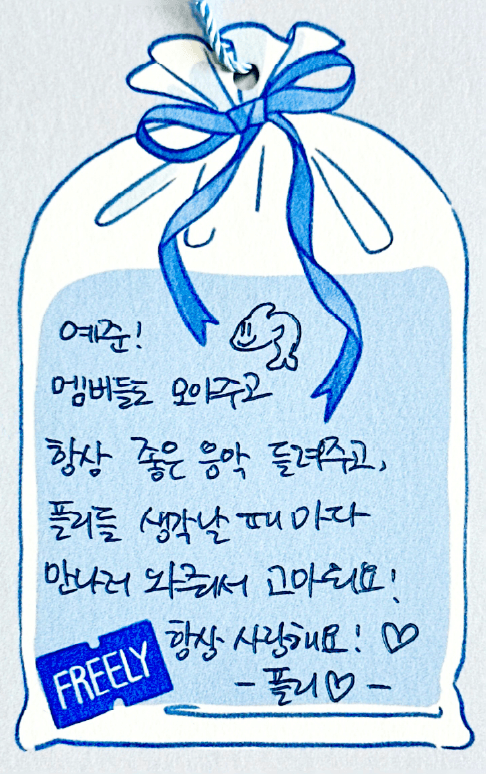 예준!
멤버들도 모아주고
항상 좋은 음악 들려주고,
플리들 생각날 때마다
만나러 와줘서 고마워요!
항상 사랑해요! ♡
- 플리♡ -
FREELY